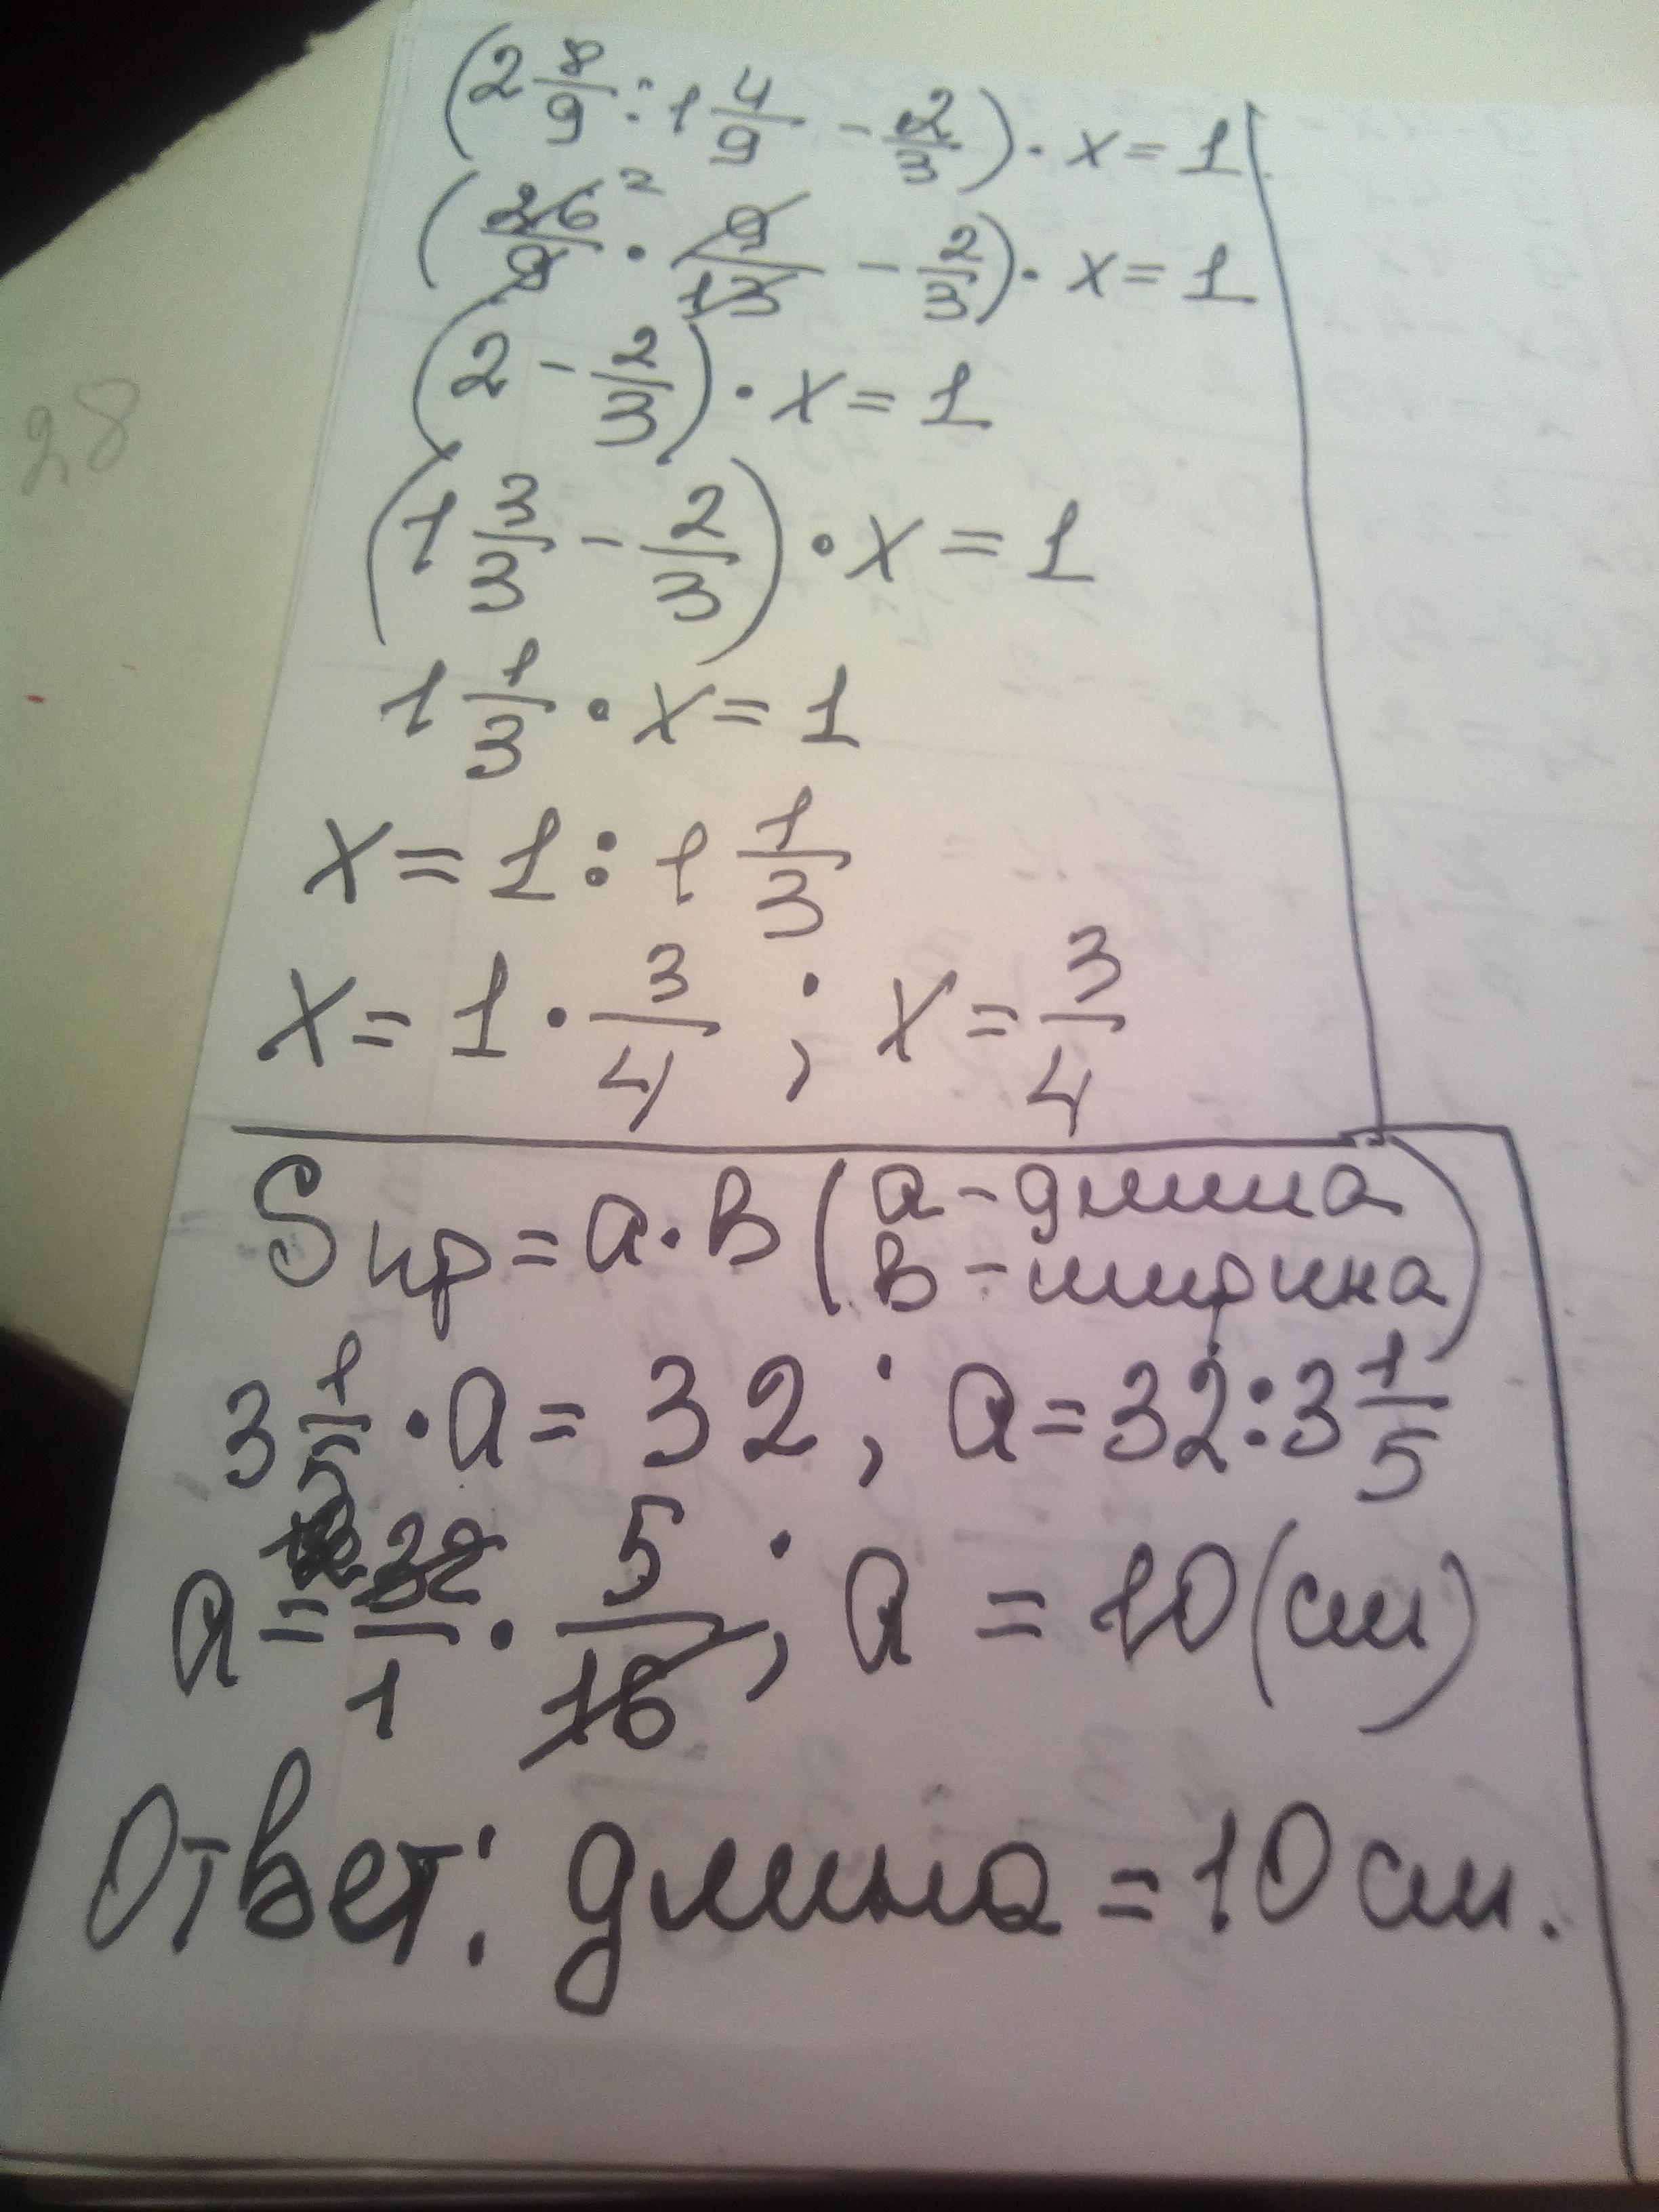 (2 8/9 : 1 4/9 - 2/3) · x = 1
(26/9 ² · 9/13 - 2/3) · x = 1
(2 - 2/3) · x = 1
(1 3/3 - 2/3) · x = 1
1 1/3 · x = 1
x = 1 : 1 1/3
x = 1 · 3/4 ; x = 3/4
Sпр = a · в (a - длина
в - ширина)
3 1/5 · a = 32 ; a = 32 : 3 1/5
a = 32/1 · 5/16 ; a = 10 (см)
Ответ: длина = 10 см.
28